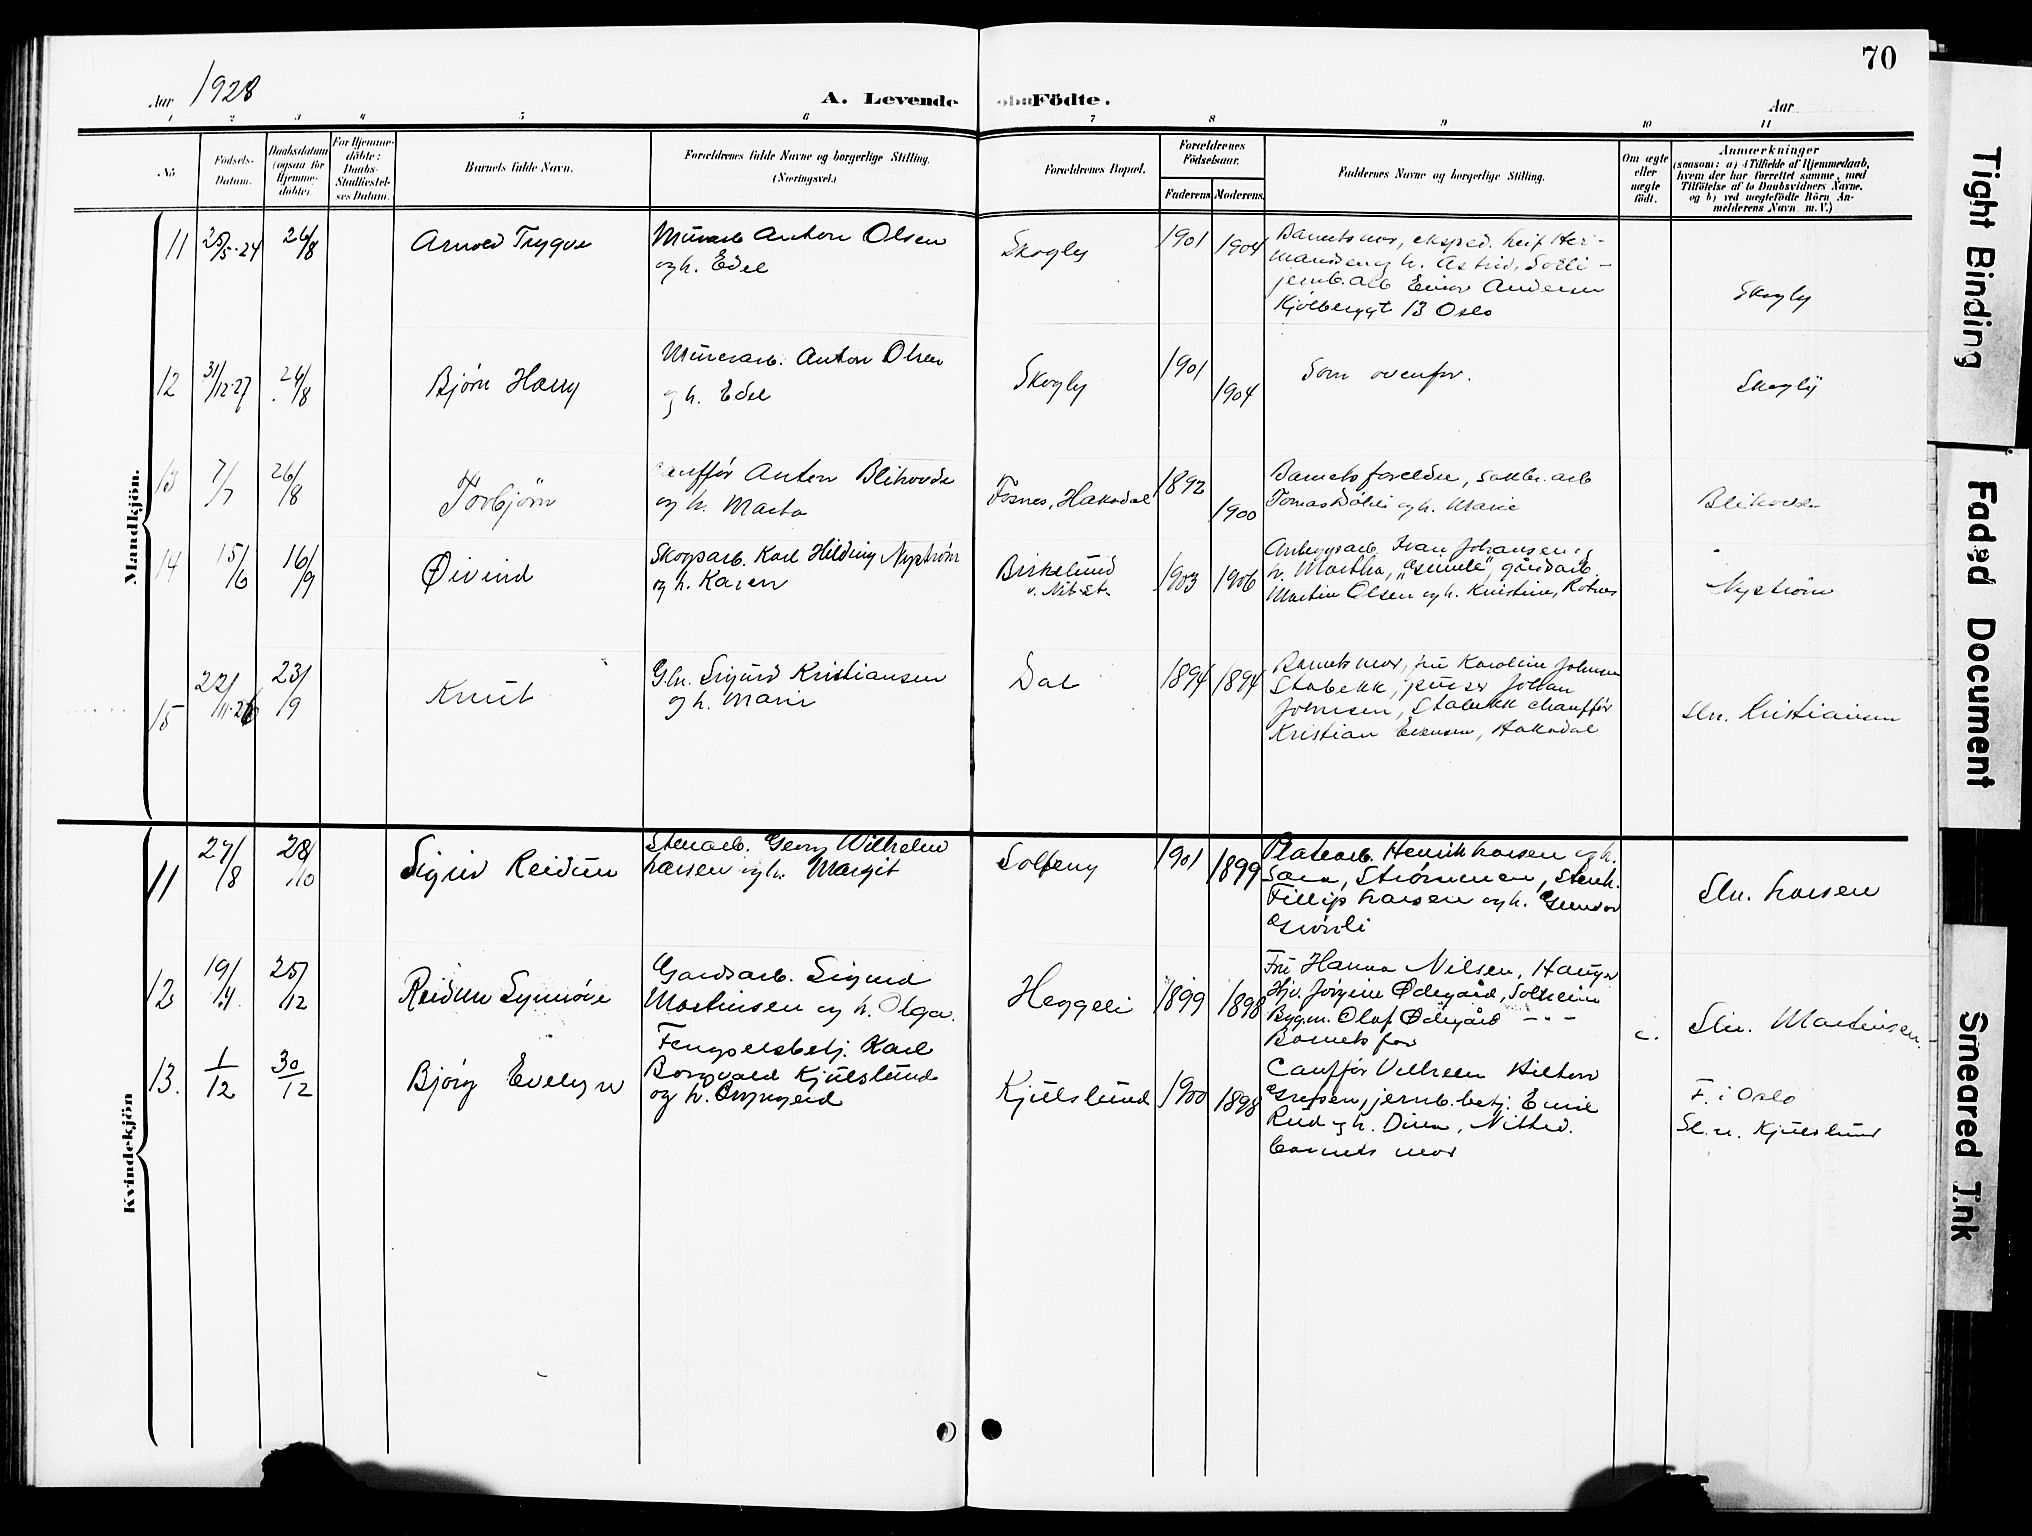 70
Aar 1928
A. Levende Födte.
Aar
1 2 3 4 5 6 7 8 9 10 11
No.
Födsels-
Datum.
Daabsdatum
(ogsaa for
Hjemme-
döbte)
For Hjemme-
döbte:
Daabs-
Stadfæstel-
ses Datum.
Barnets fulde Navn.
Forældrenes fulde Navne og borgerlige Stilling.
(Næringsvei.)
Forældrenes Bopæl.
Forældrenes
Födselsaar.
Faderens Moderens
Faddernes Navne og borgerlige Stilling.
Om ægte
eller
uægte
födt.
Anmærkninger
(saasom: a) i Tilfælde af Hjemmedaab,
hvem der har forrettet samme, med
Tilföielse af to Daabsvidners Navne,
og b) ved uægtefödte Börn An-
melderens Navn m. V.)
Mandkjön.
11 25/5-24 26/8 Arnold Trygve
Murarb Anton Olsen
og h. Edel
Skogly 1901 1904
Barnets mor, eksped. Leif Her-
mansen og h. Astrid, Solli -
jernb.arb Einar Andersen
Kjølberggt 13 Oslo
Skogly
12 31/12-27 26/8 Bjørn Harry
Murerarb. Anton Olsen
og h. Edel
Skogly 1901 1904
Som ovenfor.
Skogly
13 7/7 26/8 Torbjørn
Chauffør Anton Blikovde
og h. Marta
Fosnes, Hakadal 1892 1900
Barnets foreldre,
Tomas Døhli og h. Marie
14 15/6 16/9 Øivind
Skogsarb. Karl Hilding Nystrøm
og h. Karen
Birkelund
v. Nit.st. 1903 1906
Anleggsarb. Ivar Johansen og
h. Martha, gårdsarb.
Martin Olsen og h. Kristine, Rotnes
Nystrøm
15 22/11-26 23/9 Knut
Gbr. Sigurd Kristiansen
og h. Marie
Dal 1894 1894
Barnets mor, fru Karoline Johnsen
Stabekk, Johan
Johnsen, Stabekk chauffør
Kristian Evensen, Hakadal
Sln. Kristiansen
Kvindekjön
11 27/8 28/10 Sigrid Reidun
Stenarb. Georg Wilhelm
Larsen og h. Margit
Solfeng 1901 1899
Platearb. Henrik Larsen og h.
Sara, Strømmen, Stenh.
Fillip Larsen og h. Gunvor
Grønli
Sln. Larsen
12 19/4. 25/12 Reidun Synnøve
Gardsarb. Sigurd
Martinsen og h. Olga.
Heggeli 1899 1898
Fru Hanna Nilsen, Hauger
Hjv. Jørgine Ødegård, Solheim
Bygm. Olaf Ødegård - " -
Barnets far
Sln. Martinsen
13. 1/12 30/12 Bjørg Evelyn
Fengselsbetj. Karl
Borgvald Kjulslund
og h. Bryngerd
Kjulslund 1900 1898
Cauffør Vilhelm Hilton
Grefsen, jernb.betj. Emil
Rud og h. Dina, Nitted.
barnets mor
F. i Oslo
Sl.n. Kjulslund
Tight Binding
Faded Document
Smeared Ink